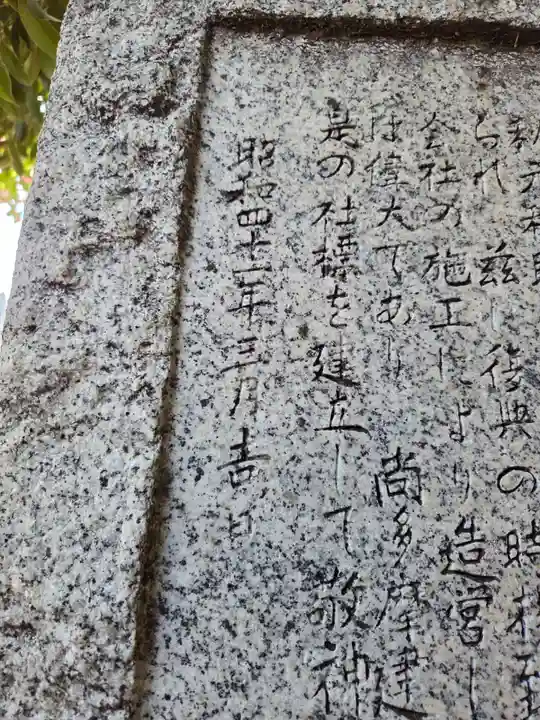 られ茲に復興の時
会社の施工により造営し
は偉大であり尚多摩建
是の社標を建立して敬神
昭和四十一年三月吉日